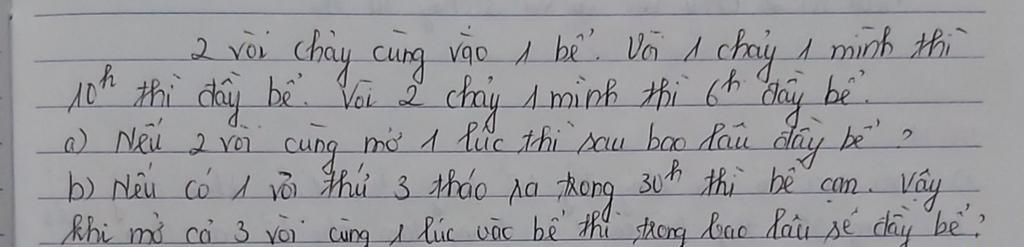 2 vòi chảy cùng vào 1 bể. Vòi 1 chảy 1 mình thì
10h thì đầy bể. Vòi 2 chảy 1 mình thì 6h đầy bể.
a) Nếu 2 vòi cùng mở 1 lúc thì sau bao lâu đầy bể?
b) Nếu có 1 vòi thứ 3 tháo ra trong 30h thì bể cạn. Vậy
khi mở cả 3 vòi cùng 1 lúc vào bể thì trong bao lâu sẽ đầy bể?